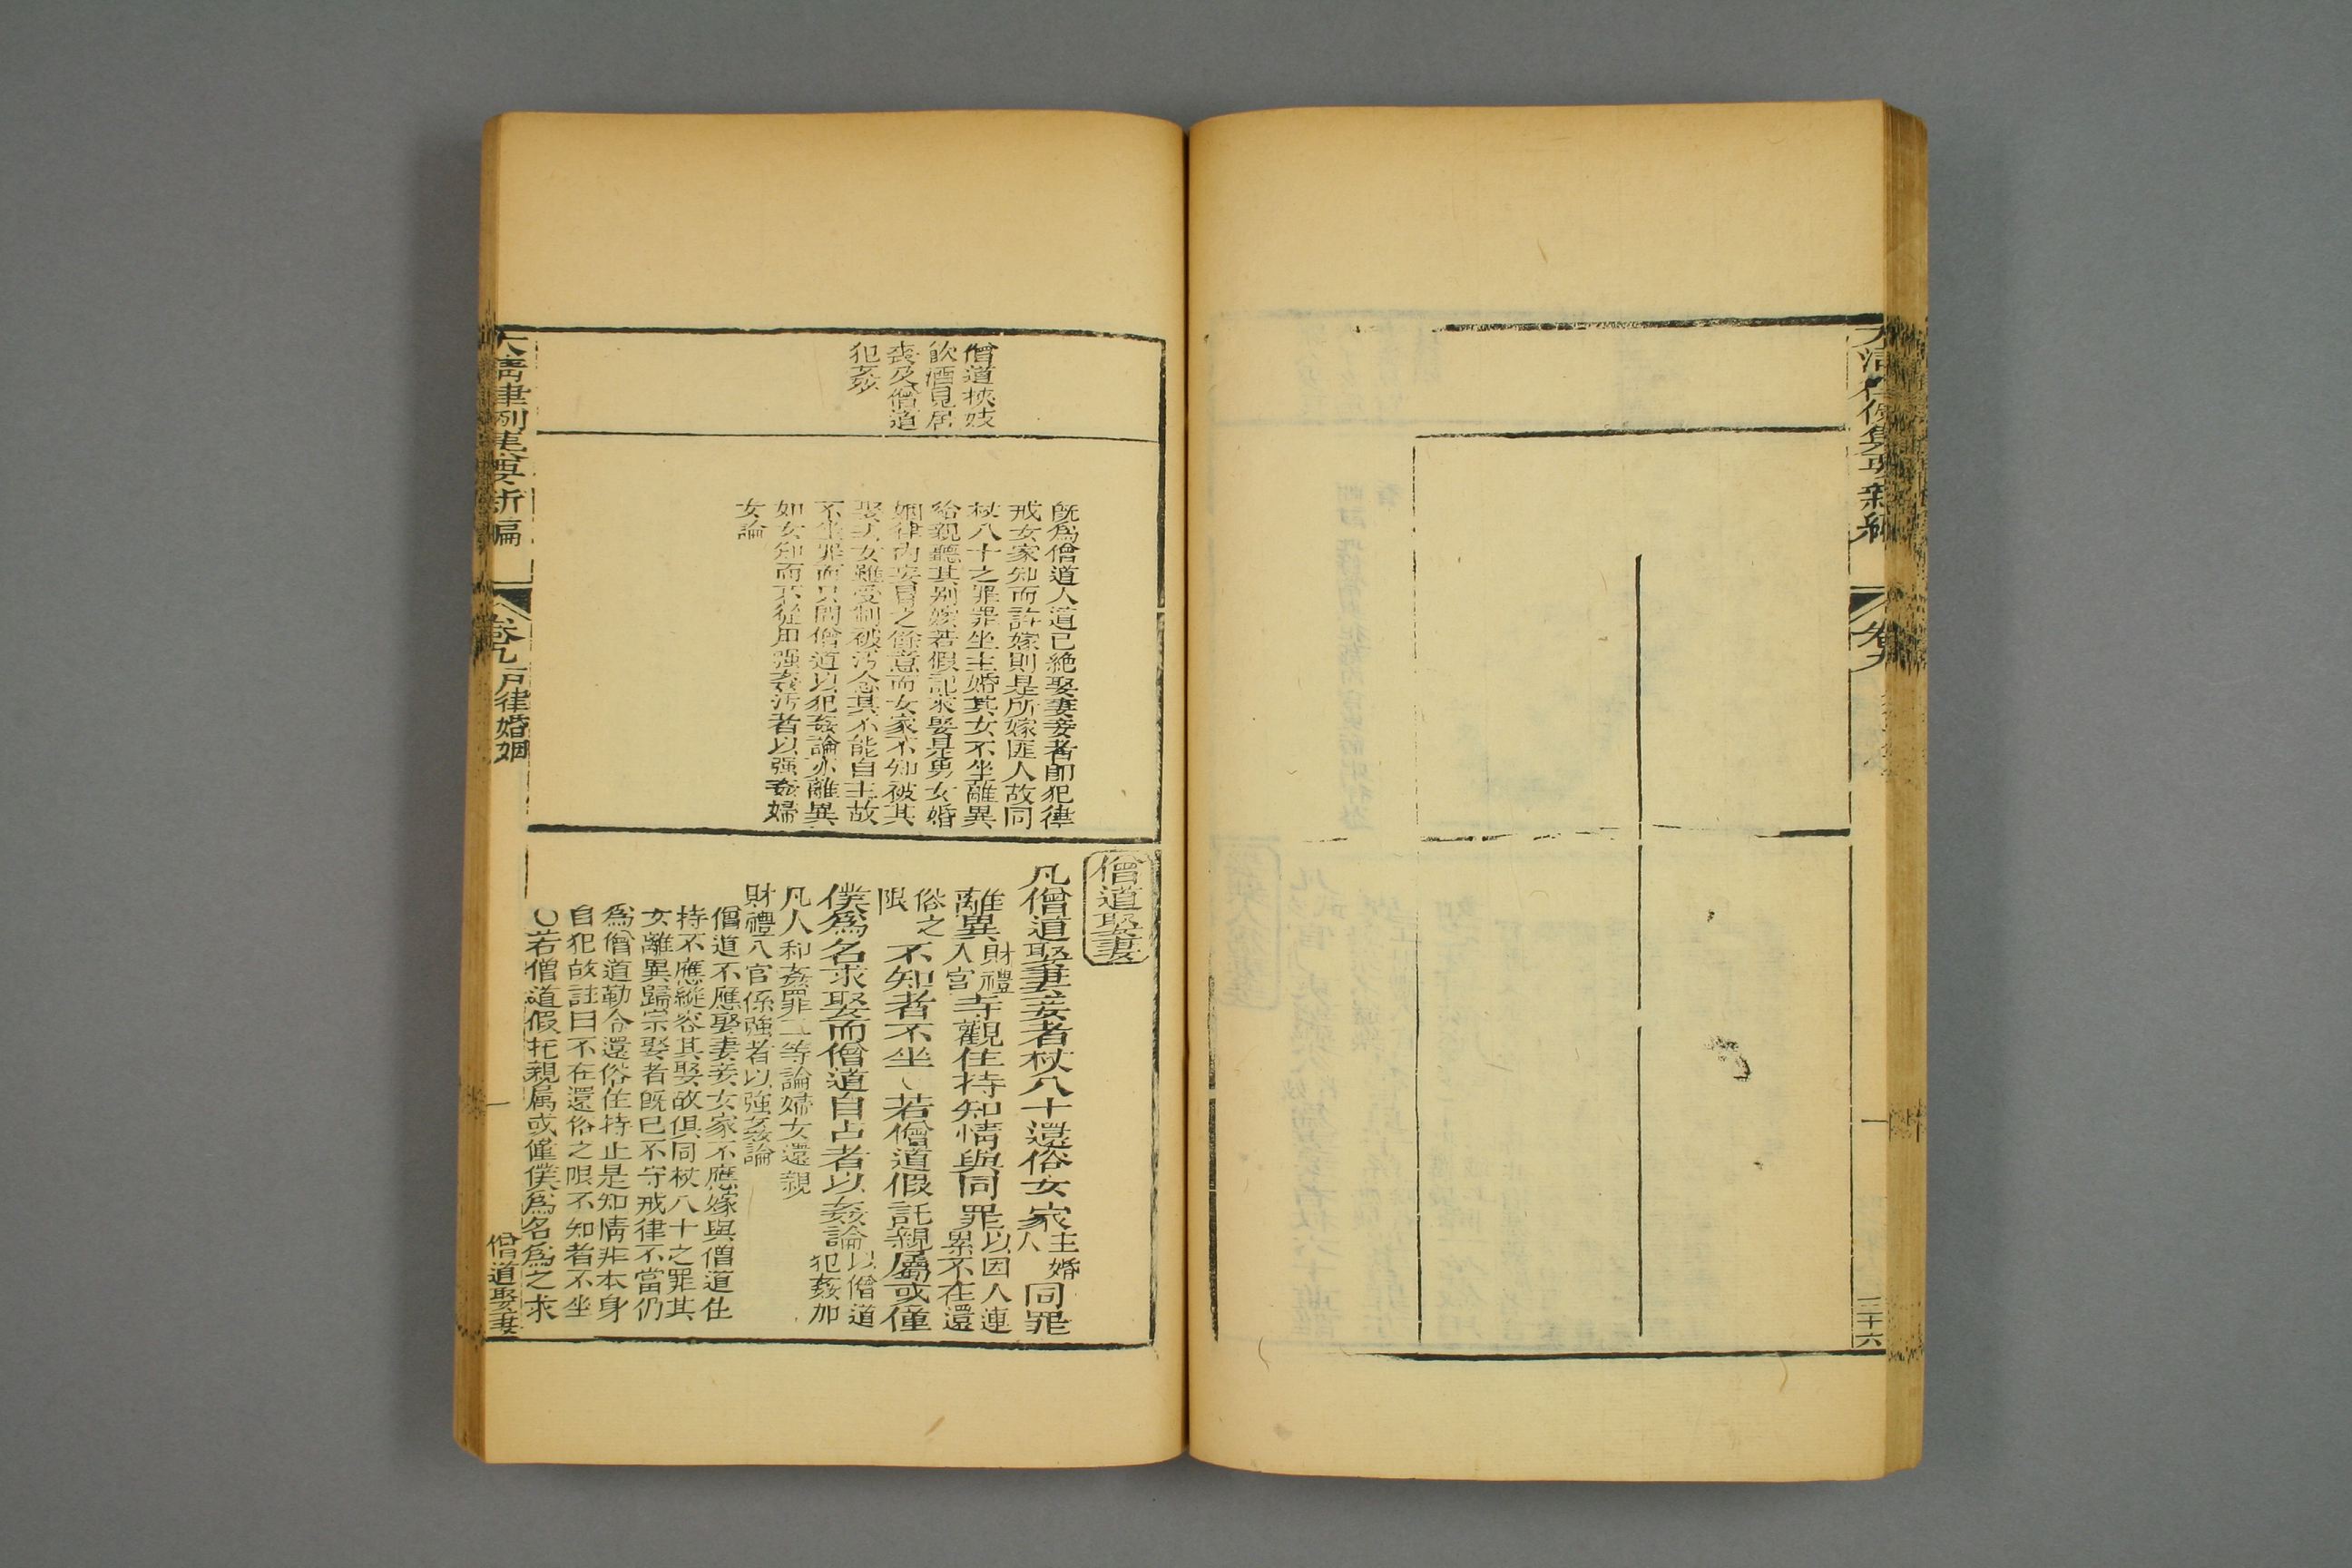 大清律例集要新編
卷九
三十六
僧道挾妓
飲酒見居
喪及僧道
犯姦
既爲僧道人道已絶娶妻妾者卽犯律
戒女家知而許嫁則是所嫁匪人故同
杖八十之罪罪坐主婚其女不坐離異
給親聽其別嫁若假託求娶是男女婚
姻律內妄冒之餘意而女家不知被其
娶去女雖受制被汚念其不能自主故
不坐罪而只問僧道以犯姦論亦離異
如女知而不從用强姦汚者以强姦婦
女論
僧道娶妻
凡僧道娶妻妾者杖八十還俗女家主婚人同罪
離異財禮入官寺觀住持知情與同罪以因人連累不在還
俗之限不知者不坐〇若僧道假託親屬或僮
僕爲名求娶而僧道自占者以姦論以僧道犯姦加
凡人和姦罪二等論婦女還親
財禮入官係强者以强姦論
僧道不應娶妻妾女家不應嫁與僧道住
持不應縱容其娶故俱同杖八十之罪其
女離異歸宗娶者既已不守戒律不當仍
爲僧道勒令還俗住持止是知情非本身
自犯故註曰不在還俗之限不知者不坐
〇若僧道假托親属或僮僕爲名爲之求
大清律例集要新編
卷九戶律婚姻
僧道娶妻